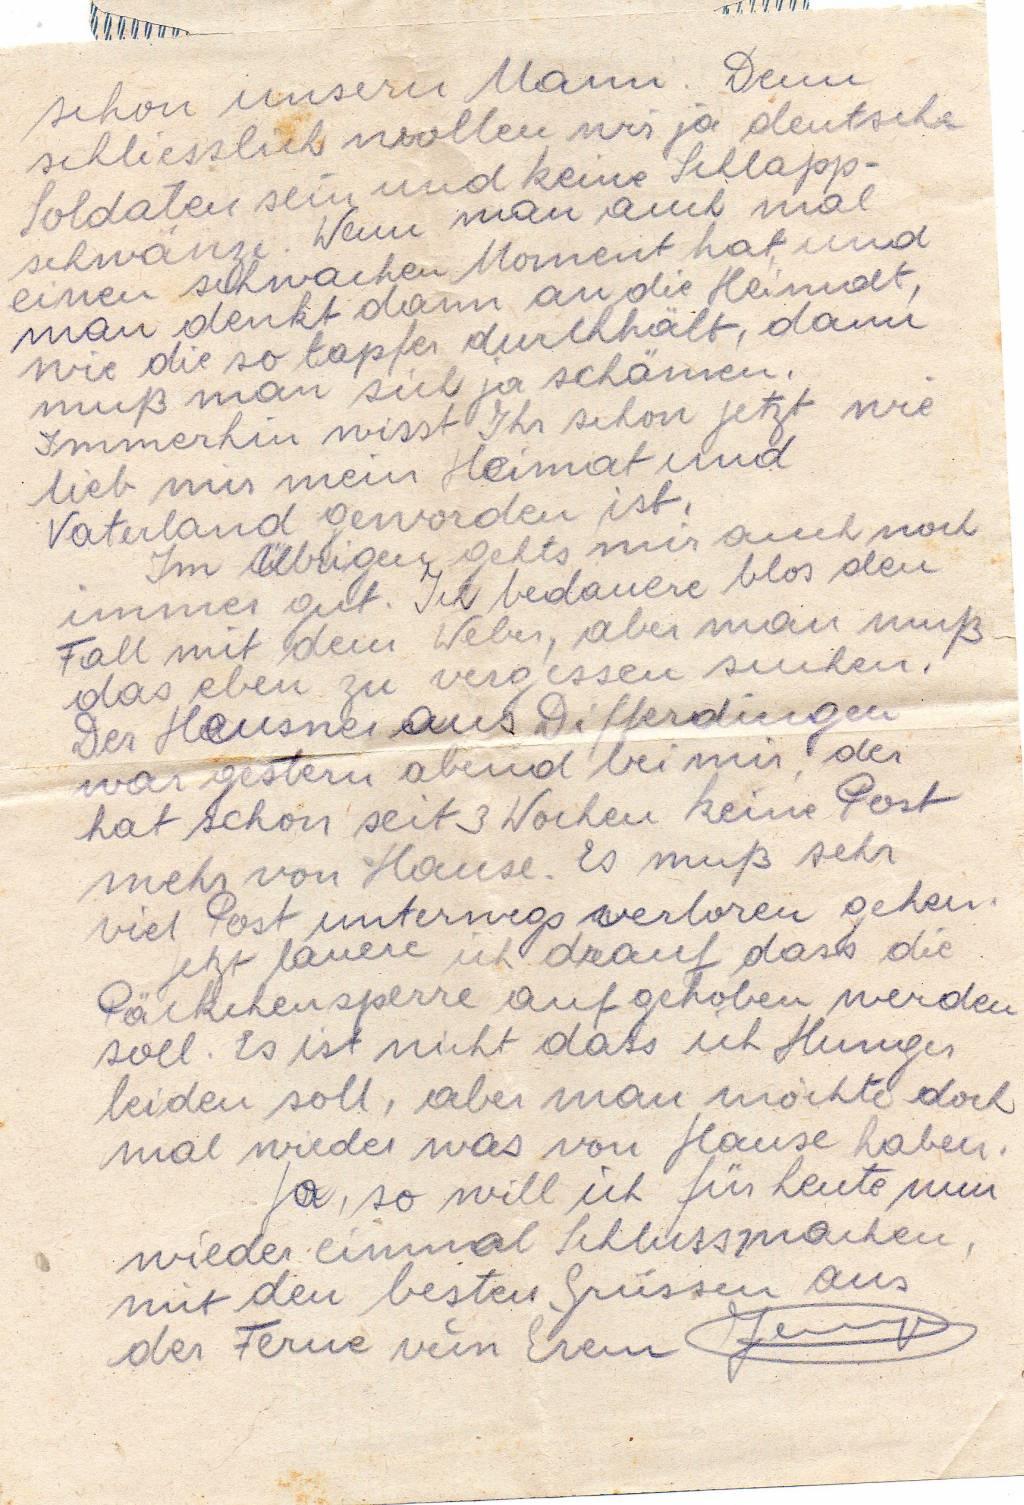 schon unsern Mann. Denn
schliesslich wollen wir ja deutsche
Soldaten sein und keine Schlapp-
schwänze. Wenn man auch mal
einen schwachen Moment hat, und
man denkt dann an die Heimat,
wie die so tapfer durchhält, dann
muß man sich ja schämen.
Immerhin wisst Ihr schon jetzt wie
lieb mir mein Heimat und
Vaterland geworden ist.
Im Übrigen gehts mir auch noch
immer gut. Ich bedauere blos den
Fall mit dem Weber, aber man muß
das eben zu vergessen suchen.
Der Hausner aus Differdingen
war gestern abend bei mir, der
hat schon seit 3 Wochen keine Post
mehr von Hause. Es muß sehr
viel Post unterwegs verloren gehen.
Jetzt lauere ich drauf dass die
Päckchensperre aufgehoben werden
soll. Es ist nicht dass ich Hunger
leiden soll, aber man möchte doch
mal wieder was von Hause haben.
Ja, so will ich für heute nun
wieder einmal Schluss machen,
mit den besten Grüssen aus
der Ferne vun Erem Jemp